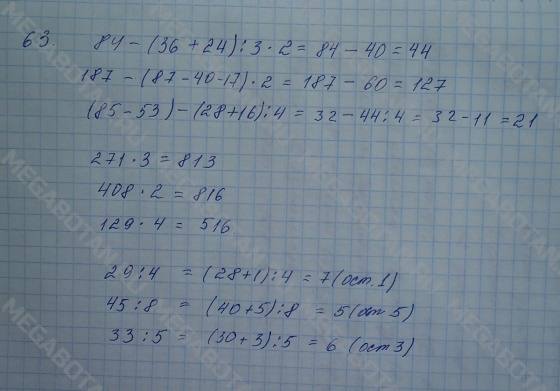 63. 84 - (36 + 24) : 3 · 2 = 84 - 40 = 44
187 - (87 - 40 - 17) · 2 = 187 - 60 = 127
(85 - 53) - (28 + 16) : 4 = 32 - 44 : 4 = 32 - 11 = 21
271 · 3 = 813
408 · 2 = 816
129 · 4 = 516
29 : 4 = (28 + 1) : 4 = 7 (ост. 1)
45 : 8 = (40 + 5) : 8 = 5 (ост 5)
33 : 5 = (30 + 3) : 5 = 6 (ост 3)